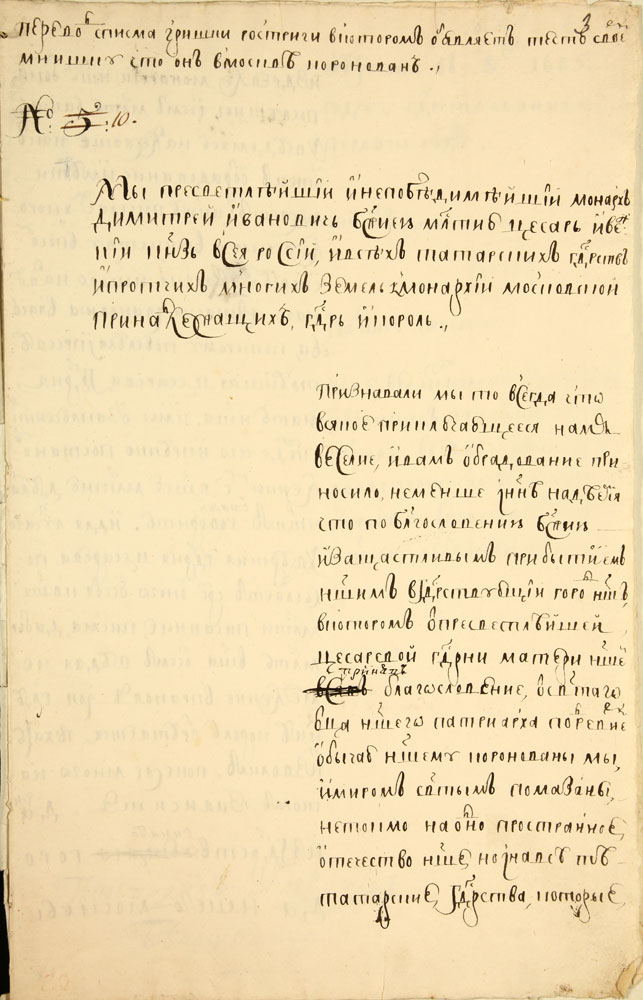 3
Переводъ списма гришки ростриги вкоторомъ объявляетъ тестю своему
мнишку что онъ вмосквѣ коронованъ.,
No: 10.
Мы пресветлѣйшій и непобѣдимѣйшій монархъ
Димитрей Ивановичь бжіею млстию цесарь и ве
кій кнзь всея росіи, и всѣхъ татарскихъ гдрствъ
и протчихъ многихъ земель кмонархіи московской
принадлежащихъ, гдрь и король.,
Признавали мы то всегда что
всякое приключающееся намъ
веселие, и вамъ обрадование при
носило, неменше и ннѣ надѣемся
что по блгословению бжию
и защастливымъ прибытиемъ
ншимъ вцрствующій город ншъ,
вкоторомъ о пресветлѣйшей
цесарской гдрни матери ншей
приняв благословение, о святаго
вца ншего патриарха по древне
обычаю ншему коронованы мы,
и миромъ святымъ помазаны,
нетокмо на оно пространное
отечество нше, но и на все
татарские гдрства, которые